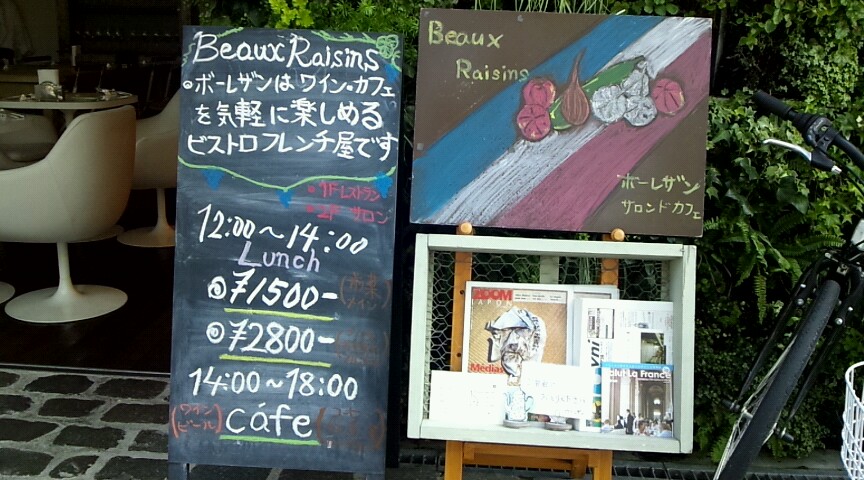 Beaux Raisins
ボーレザンは ワイン・カフェ
を気軽に楽しめる
ビストロフレンチ屋です
1F レストラン
2F サロン
12:00～14:00
Lunch
¥1500-
¥2800-
14:00～18:00
ワイン
ビール
cáfe
Beaux
Raisins
ボーレザン
サロンドカフェ
ZOOM
JAPON
Médias
La France